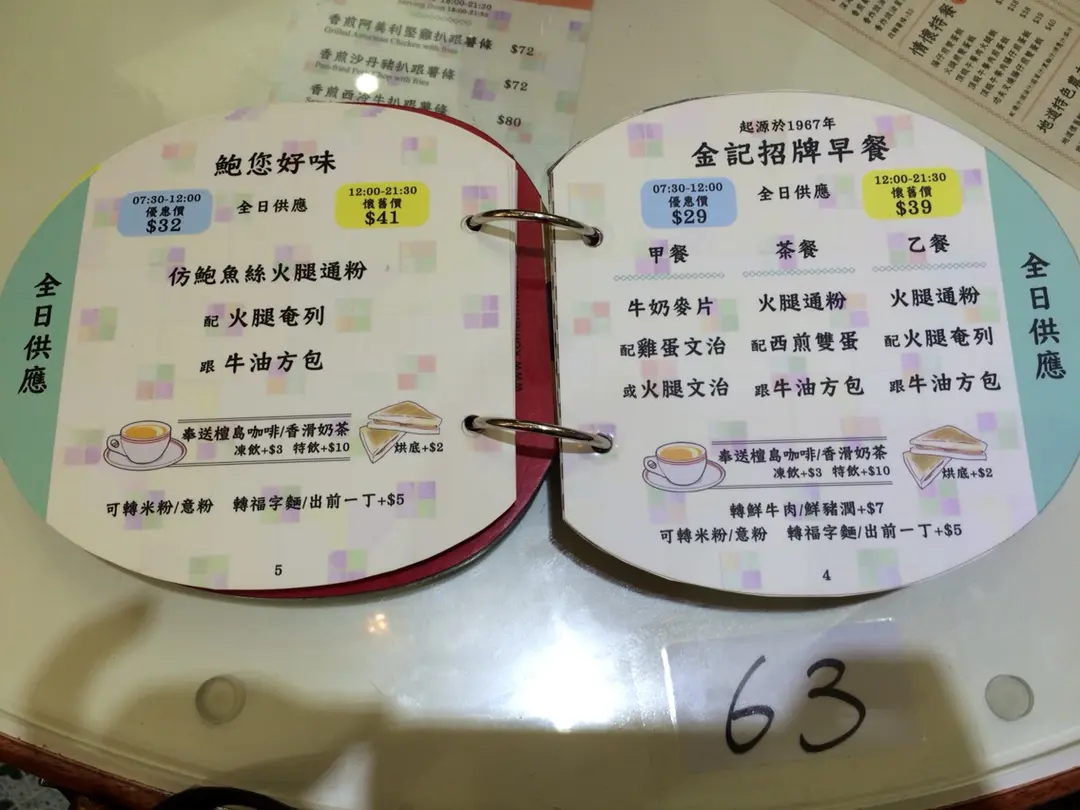 香煎阿美利堅雞扒跟薯條
Grilled American Chicken with fries
$72
香煎沙丹豬扒跟薯條
Pan-fried Pork Chop with fries
$72
香煎西冷牛扒跟薯條
$80
情懷特餐
地道特色
鮑您好味
07:30-12:00
優惠價
$32
全日供應
12:00-21:30
懷舊價
$41
仿鮑魚絲火腿通粉
配 火腿奄列
跟 牛油方包
奉送檀島咖啡/香滑奶茶
凍飲+$3 特飲+$10
烘底+$2
可轉米粉/意粉 轉福字麵/出前一丁+$5
5
全日供應
起源於1967年
金記招牌早餐
07:30-12:00
優惠價
$29
全日供應
12:00-21:30
懷舊價
$39
甲餐 茶餐 乙餐
牛奶麥片 火腿通粉 火腿通粉
配雞蛋文治 配西煎雙蛋 配火腿奄列
或火腿文治 跟牛油方包 跟牛油方包
奉送檀島咖啡/香滑奶茶
凍飲+$3 特飲+$10
烘底+$2
轉鮮牛肉/鮮豬潤+$7
可轉米粉/意粉 轉福字麵/出前一丁+$5
4
全日供應
63